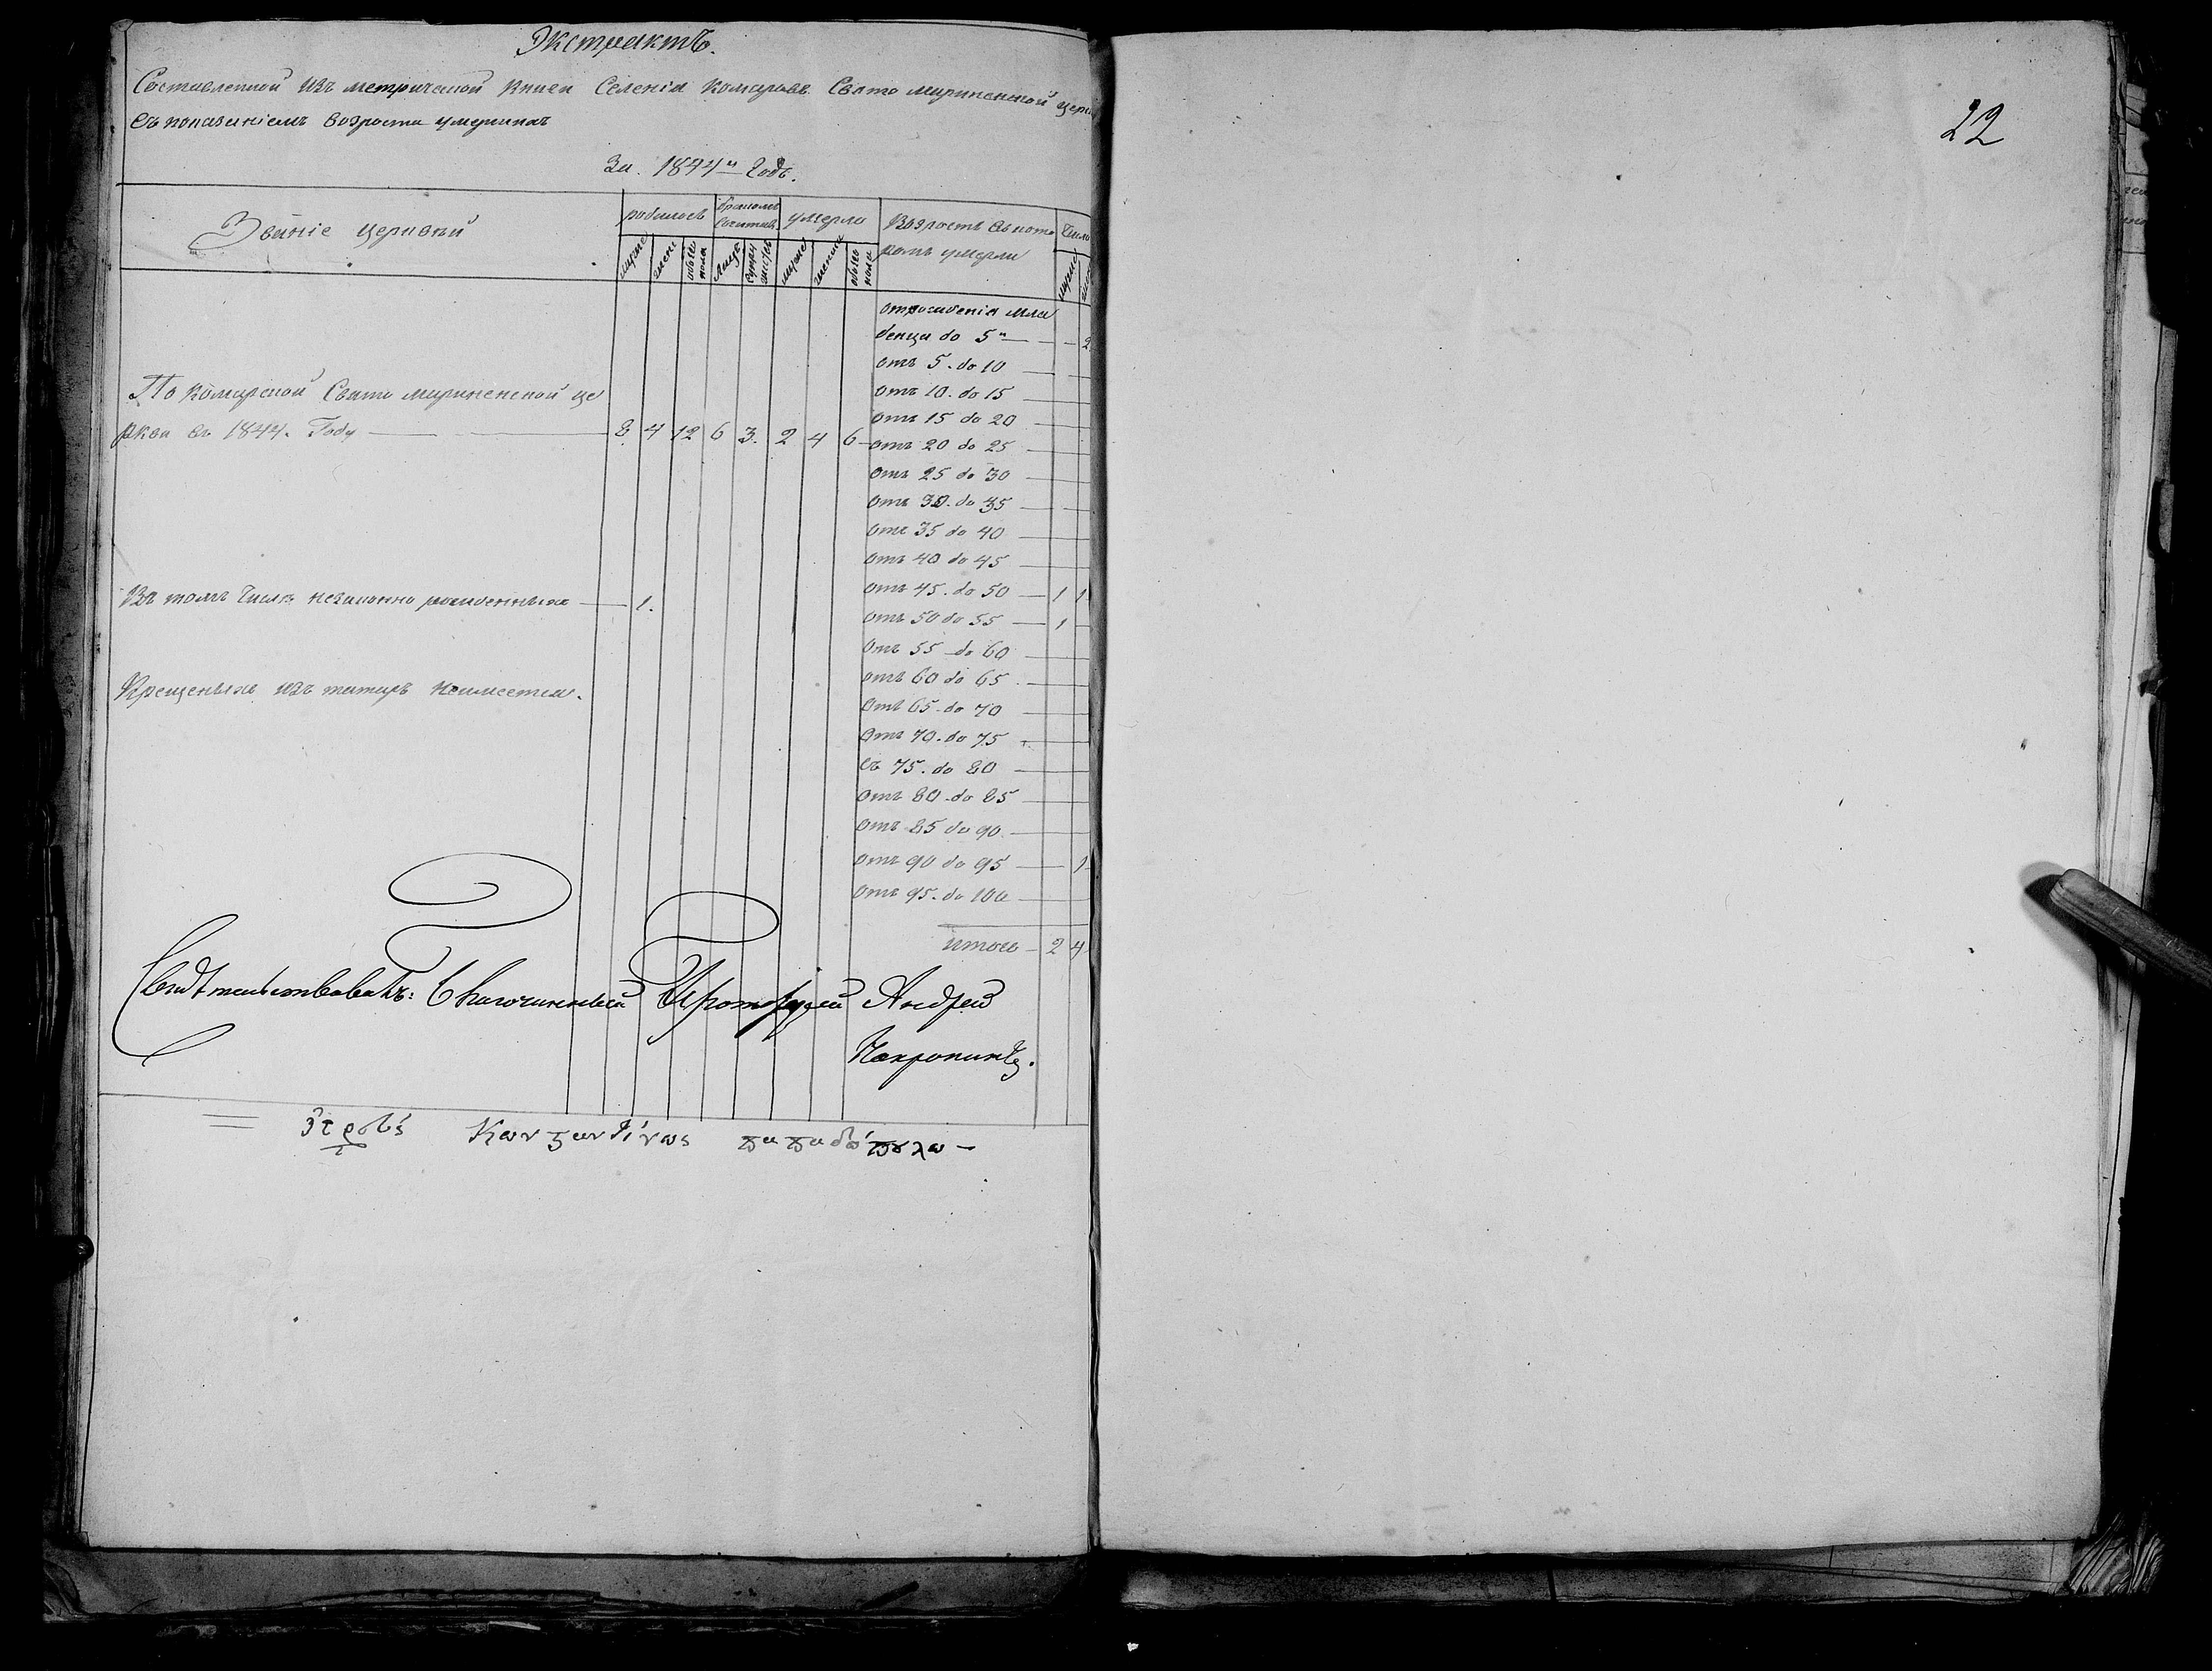 Экстрактъ.
Составленной изъ метрической книги Селенія Комаръ Свято Мариненской церк
Съ показаніемъ возраста умершихъ
За. 1844й Годъ.
Званіе церквей
родилось
бракомъ сочитан
умерло
Возрастъ въ кото
ромъ умерли
Число
мужес
женс
обоего пола
Лицъ
мужес
женска
обоего пола
мужес
отрожденія мла
денца до 5и — 2
отъ 5. до 10 —
отъ 10. до 15 —
отъ 15 до 20 —
отъ 20 до 25 —
отъ 25 до 30 —
отъ 30. до 35 —
отъ 35 до 40 —
отъ 40 до 45 —
отъ 45. до 50 — 1 1
отъ 50 до 55 — 1
отъ 55 до 60 —
отъ 60 до 65 —
отъ 65. до 70 —
отъ 70. до 75 —
съ 75. до 80 —
отъ 80 до 85 —
отъ 85 до 90 —
отъ 90 до 95 — 1
отъ 95. до 100 —
итого — 2 4
По Комарской Свято мариненской це
ркви въ 1844. Году — 8. 4 12 6 3. 2 4 6
Въ томъ Числѣ незаконно рожденныхъ — 1.
Крещеныхъ изъ татаръ неимеется.
Свидѣтельствовалъ: Благочинный Протоіерей Андрей
Κωνσταντίνος παπαδόπουλο —
22